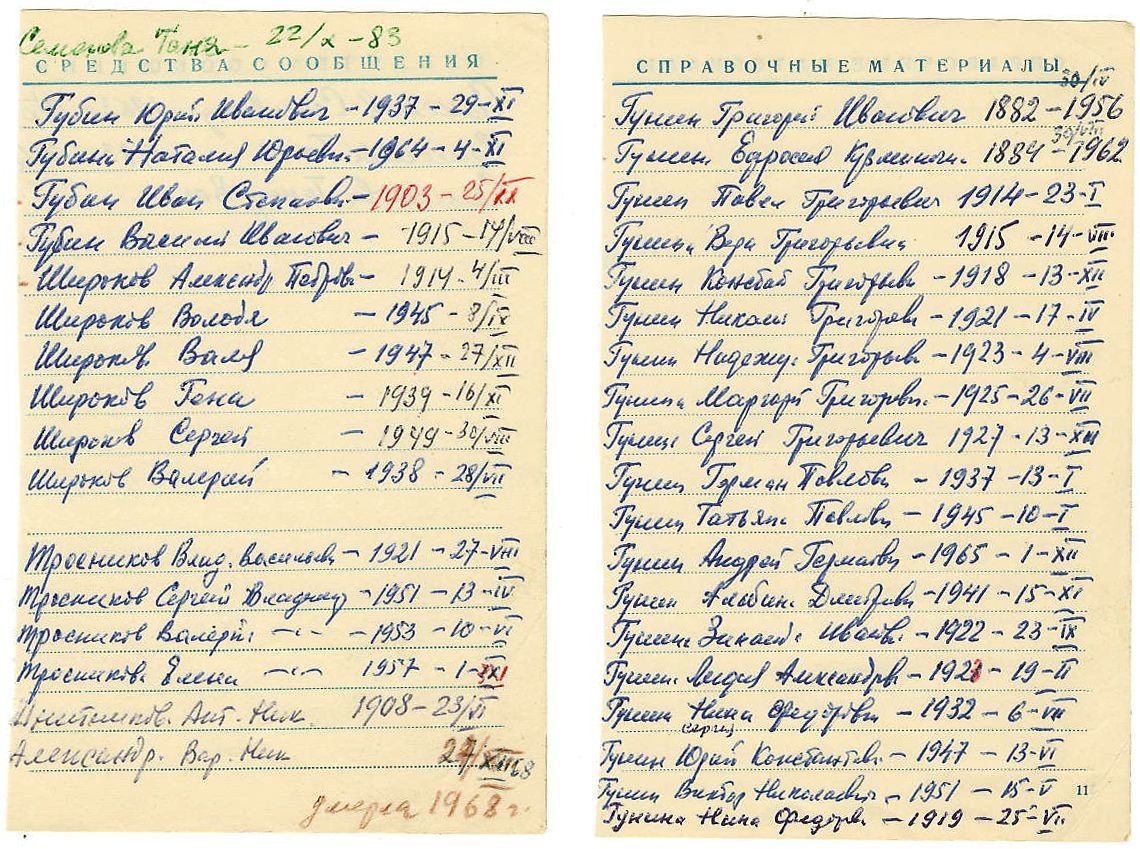 Семенова Таня – 22/X – 83
СРЕДСТВА СООБЩЕНИЯ
Губин Юрий Иванович – 1937 – 29 – XI
Губина Наталия Юрьевн. – 1964 – 4 – XI
Губин Иван Степанови – 1903 – 25/IX
Губин Василий Иванович – 1915 – 14/VIII
Широков Александр Петрови – 1914 – 4/III
Широков Володя – 1945 – 8/IX
Широков Валя – 1947 – 27/XII
Широков Гена – 1939 – 16/XI
Широков Сергей – 1949 – 30/VIII
Широков Валерий – 1938 – 28/VII
Тросников Влад. Васильеви – 1921 – 27 – VIII
Тросников Сергей Владимир – 1951 – 13 – IV
Тросников Валерий – " – – 1953 – 10 – VI
Тросникова Елена – " – 1957 – 1 – XI
Ант. Ник. 1908 – 23/VI
Александр. Вар. Ник 27/XII 68
умерла 1968 г.
СПРАВОЧНЫЕ МАТЕРИАЛЫ
30/IV
Гунин Григорий Иванович 1882 – 1956
30/VIII
Гунина Кузминичн. 1884 – 1962
Гунин Павел Григорьевич 1914 – 23 – I
Гунина Вера Григорьевна 1915 – 14 – VII
Гунин Григорьеви – 1918 – 13 – XII
Гунин Николай Григорьеви – 1921 – 17 – IV
Гунина Надежда Григорьевн – 1923 – 4 – VIII
Гунина Маргари Григорьевн. – 1925 – 26 – VII
Гунин Сергей Григорьевич – 1927 – 13 – XII
Гунин Герман Павлови – 1937 – 13 – I
Гунина Татьяна Павловн – 1945 – 10 – I
Гунин Андрей Германови – 1965 – 1 – XII
Гунина Альбина Дмитриевн – 1941 – 15 – XI
Гунина Зинаида Ивановн. – 1922 – 23 – IX
Гунина Лидия Александровн. – 1923 – 19 – II
Гунина Нина Федоровн – 1932 – 6 – VIII
Сергей
Гунин Юрий Константинови – 1947 – 13 – VI
Гунин Виктор Николаевич – 1951 – 15 – V 11
Гунина Нина Федоровн – 1919 – 25 – VII